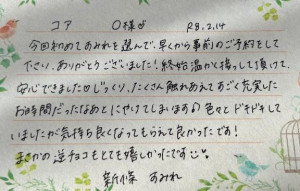 コア 〇様♂ R8.2.14
今日初めてすみれを選んで、早くから事前のご予約をして
下さり、ありがとうございました!終始温かく接して頂けて、
安心できました じっくり、たくさん触れあえてすごく充実した
お時間だったなあとにやけてしまいます 色々とドキドキして
いましたが気持ち良くなってもらえて良かったです!
まさかの逆チョコもとても嬉しかったです
新條 すみれ